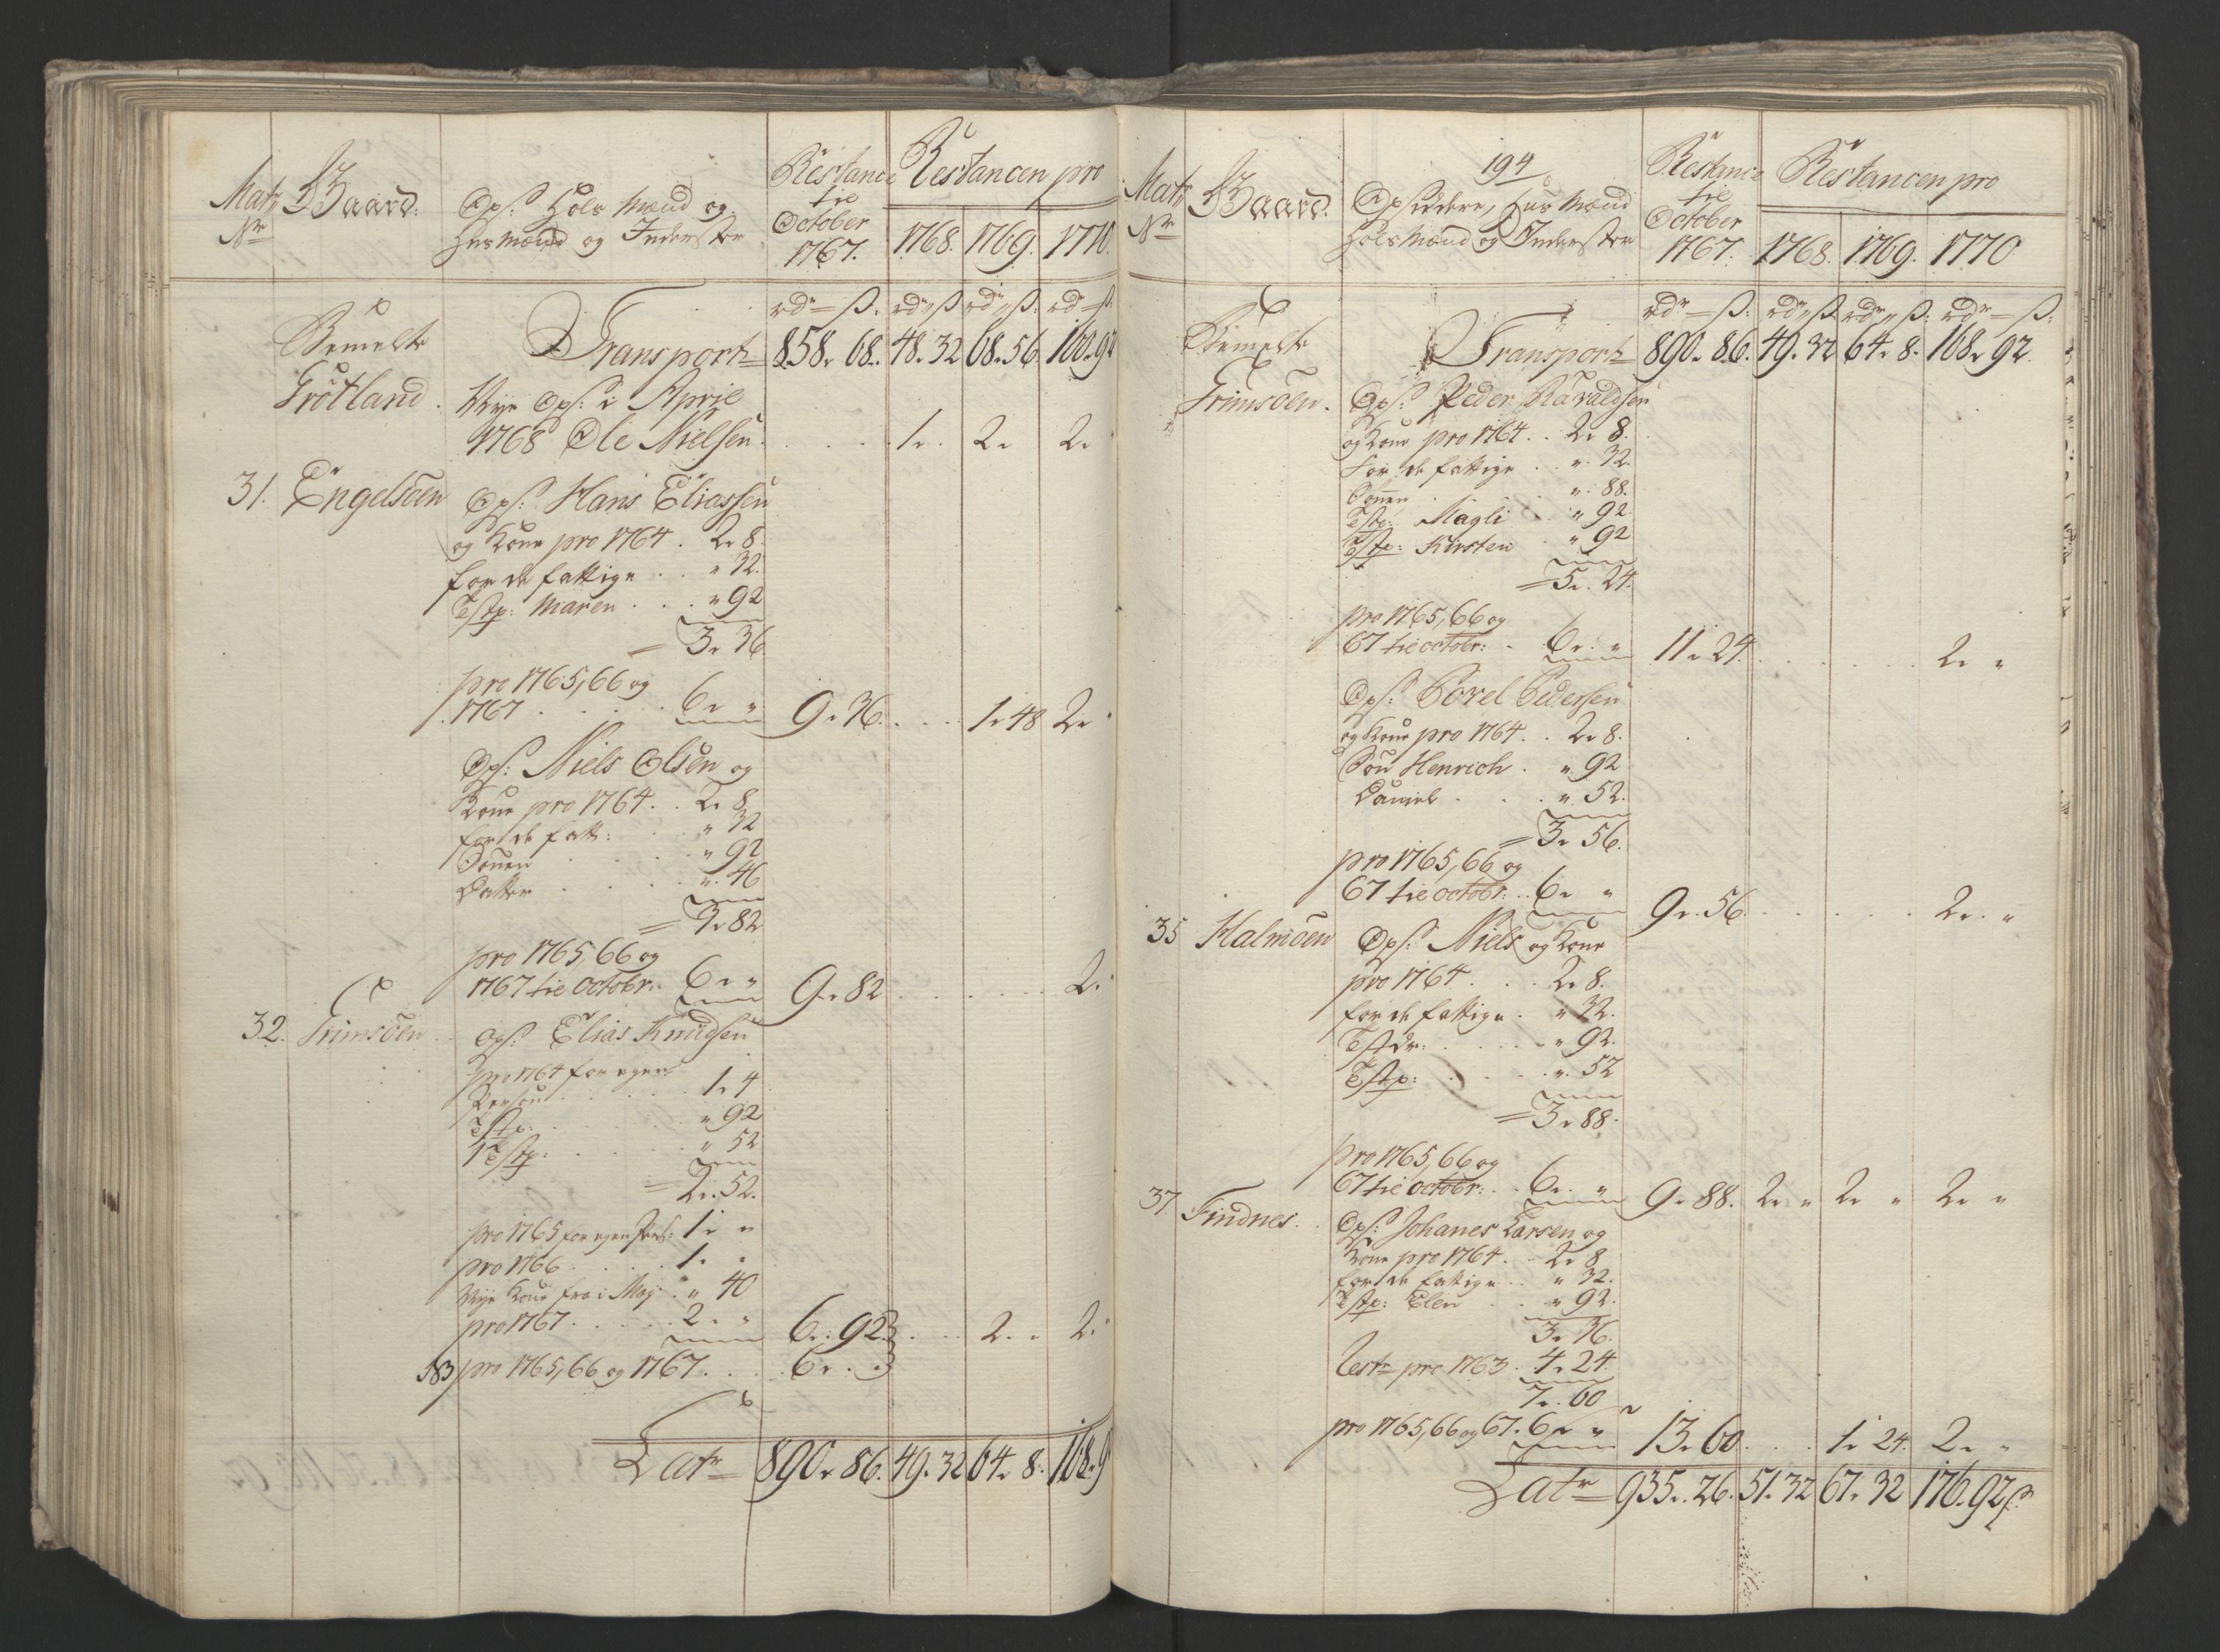 Matr Nr
Gaard.
Ops: Hols Mænd og
Huusmænd og Inderster
Restance
til
October
1767.
Restancen pro
1768. 1769. 1770.
rdr ß: rdr ß rdr ß: rdr ß:
Bemelte Transport 858. 68. 48. 32 68. 56. 160. 92
Grötland. Nye Ops: i April
1768 Ole Nielsen. . . . . 1. . 2. 2.
31. Engelsöen Ops: Hans Eliassen
og Kone pro 1764. 2. 8.
for de fattige . . " 32.
Tstp: Maren . . . " 92
= 3. 36
pro 1765, 66 og
1767 . . . . . 6. " 9. 36. . . . 1. 48 2.
Ops: Niels Olsen og
Kone pro 1764. . 2. 8.
for de fatt: . . " 32
Sönen . . . . " 92
Datter . . . . ". 46
= 3. 82
pro 1765, 66 og
1767 til Octobr: 6. " 9. 82 . . . . . . 2.
32. Trimsöen Ops: Elias Knudsen
pro 1764 for egen
Person . . . . . 1. 4
Tstp: . . . . " 92
1 Tstp: . . . . " 52
= 2. 52.
pro 1765 for egen Pers: 1. "
pro 1766 . . . . 1. "
Nye Kone fra i May. " 40
pro 1767. . . . . 2. " 6. 92. . . . 2. . 2.
pro 1765, 66 og 1767. . . . 6. . .
Latr 890. 86. 49. 32 64. 8. 168. 9
194
Matr Nr
Gaard.
Opsiddere, Huusmænd
Holsmænd og Inderster
Restance
til
October
1767.
Restancen pro
1768. 1769. 1770
rdr ß: rdr ß rdr ß: rdr ß:
Bemelte Transport 890. 86. 49. 32 64. 8. 168. 92.
Trimsöen. Ops: Peder Haraldsen
og Kone pro 1764. . 2. 8.
For de fattige . . ". 32
Sönen . . . . ". 88.
Tstp: Magli . . " 92
Tstp: Kirsten . " 92
= 5. 24.
pro 1765, 66 og
67 til octobr: . 6. " 11. 24. . . . . . . 2. "
Ops: Povel Pedersen
og Kone pro 1764. . 2. 8.
Sön Henrich . ". 92
Daniel . . . . ". 52.
= 3. 56.
pro 1765, 66 og
67 til octobr: . . 6. " 9. 56. . . . . . . 2. . "
35 Halmöen Ops: Niels og Kone
pro 1764. . . . 2. 8.
for de fattige . " 32.
Tstdr: . . . . " 92.
Tstp: . . . . ". 52
= 3. 88.
pro 1765, 66 og
67 til octobr: . . 6. " 9. 88. 2. " 2. " 2. "
37 Findnes. Ops: Johanes Larsen og
Kone pro 1764. . 2. 8
for de fattige . . " 32.
Tstp: Elen . . . " 92.
3. 36.
Restr pro 1763. 4. 24.
7. 60
pro 1765, 66 og 67. 6. " 13. 60. . . . 1. 24. 2. . "
Latr 935. 26. 51. 32 67. 32 176. 92 ß